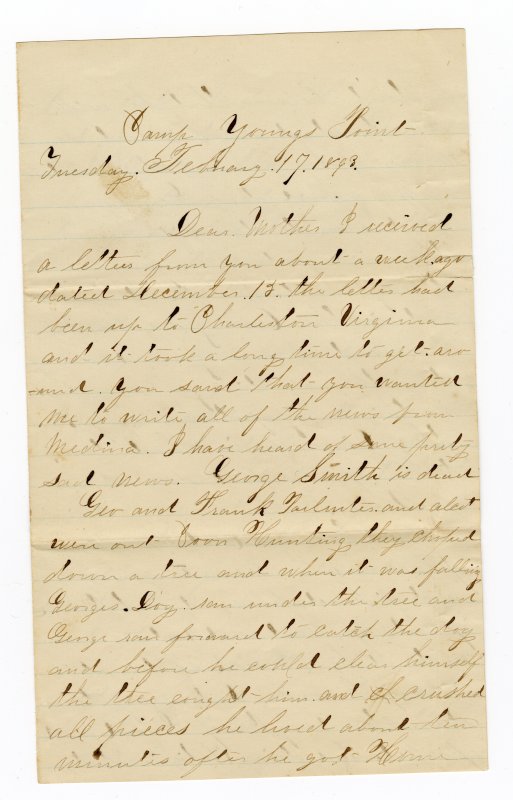 Camp Youngs Point
Tuesday. February. 17. 1863.
Dear Mother I received
a letter from you about a week ago
dated December. 13. the letter had
been up to Charleston Virginia
and it took a long time to get aro
-und. you said that you wanted
me to write all of the news from
Medina. I have heard of some prety
sad news. George Smith is dead
Geo and Frank and alot
were out Coon Hunting they choped
down a tree and when it was falling
Georges. Dog. ran under the tree and
George ran forward to catch the dog
and before he could clear himself
the tree caught him and crushed
all pieces he lived about ten
minutes after he got Home